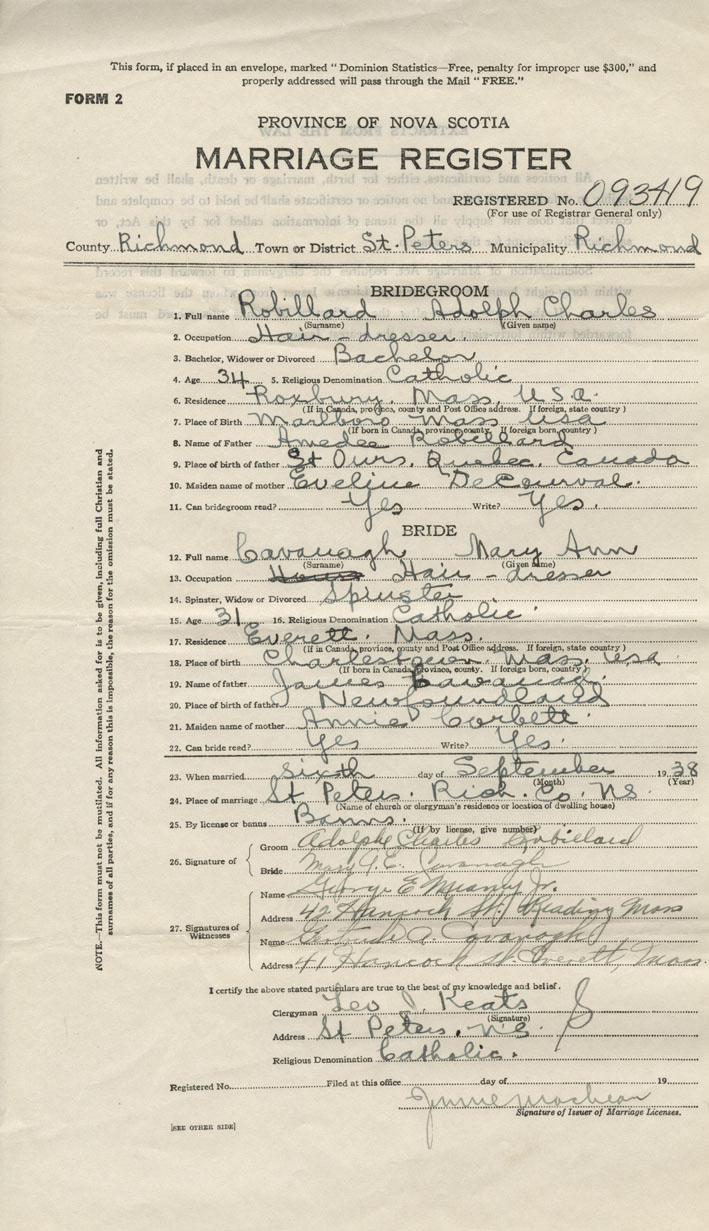 This form, if placed in an envelope, marked "Dominion Statistics—Free, penalty for improper use $300," and
properly addressed will pass through the Mail "FREE."
FORM 2
PROVINCE OF NOVA SCOTIA
MARRIAGE REGISTER
REGISTERED No. 093419
(For use of Registrar General only)
County Richmond Town or District St. Peters Municipality Richmond
BRIDEGROOM
1. Full name Robillard Adolph Charles
(Surname) (Given name)
2. Occupation Hair-dresser.
3. Bachelor, Widower or Divorced Bachelor
4. Age 34 5. Religious Denomination Catholic
6. Residence Roxbury, Mass, U.S.A.
(If in Canada, province, county and Post Office address. If foreign, state country)
7. Place of Birth Marlboro Mass Usa
(If born in Canada, province, county. If foreign born, country)
8. Name of Father Amedee Robillard
9. Place of birth of father St Ours, Quebec, Canada
10. Maiden name of mother Eveline DeCourval.
11. Can bridegroom read? Yes Write? Yes.
BRIDE
12. Full name Cavanagh Mary Ann
(Surname) (Given name)
13. Occupation Hair-dresser
14. Spinster, Widow or Divorced Spinster
15. Age 31 16. Religious Denomination Catholic.
17. Residence Everett. Mass.
(If in Canada, province, county and Post Office address. If foreign, state country)
18. Place of birth Charlestown, Mass, Usa
(If born in Canada, province, county. If foreign born, country)
19. Name of father James Cavanagh
20. Place of birth of father Newfoundland
21. Maiden name of mother Annie Corbett.
22. Can bride read? Yes Write? Yes.
23. When married sixth day of September 1938
(Month) (Year)
24. Place of marriage St Peters. Rich. Co. NS
(Name of church or clergyman's residence or location of dwelling house)
25. By license or banns Banns.
(If by license, give number)
26. Signature of
Groom Adolph Charles Robillard
Bride Mary Cavanagh
27. Signatures of Witnesses
Name George E Jr.
Address 42 Hancock St. Reading Mass
Name Gertrude A Cavanagh
Address 41 Hancock St Everett, Mass.
I certify the above stated particulars are true to the best of my knowledge and belief.
Clergyman Leo J. Keats
(Signature)
Address St Peters, N.S.
Religious Denomination Catholic.
Registered No. Filed at this office day of 19
Signature of Issuer of Marriage Licenses.
[SEE OTHER SIDE]
NOTE.—This form must not be mutilated. All information asked for is to be given, including full Christian and
surnames of all parties, and if for any reason this is impossible, the reason for the omission must be stated.